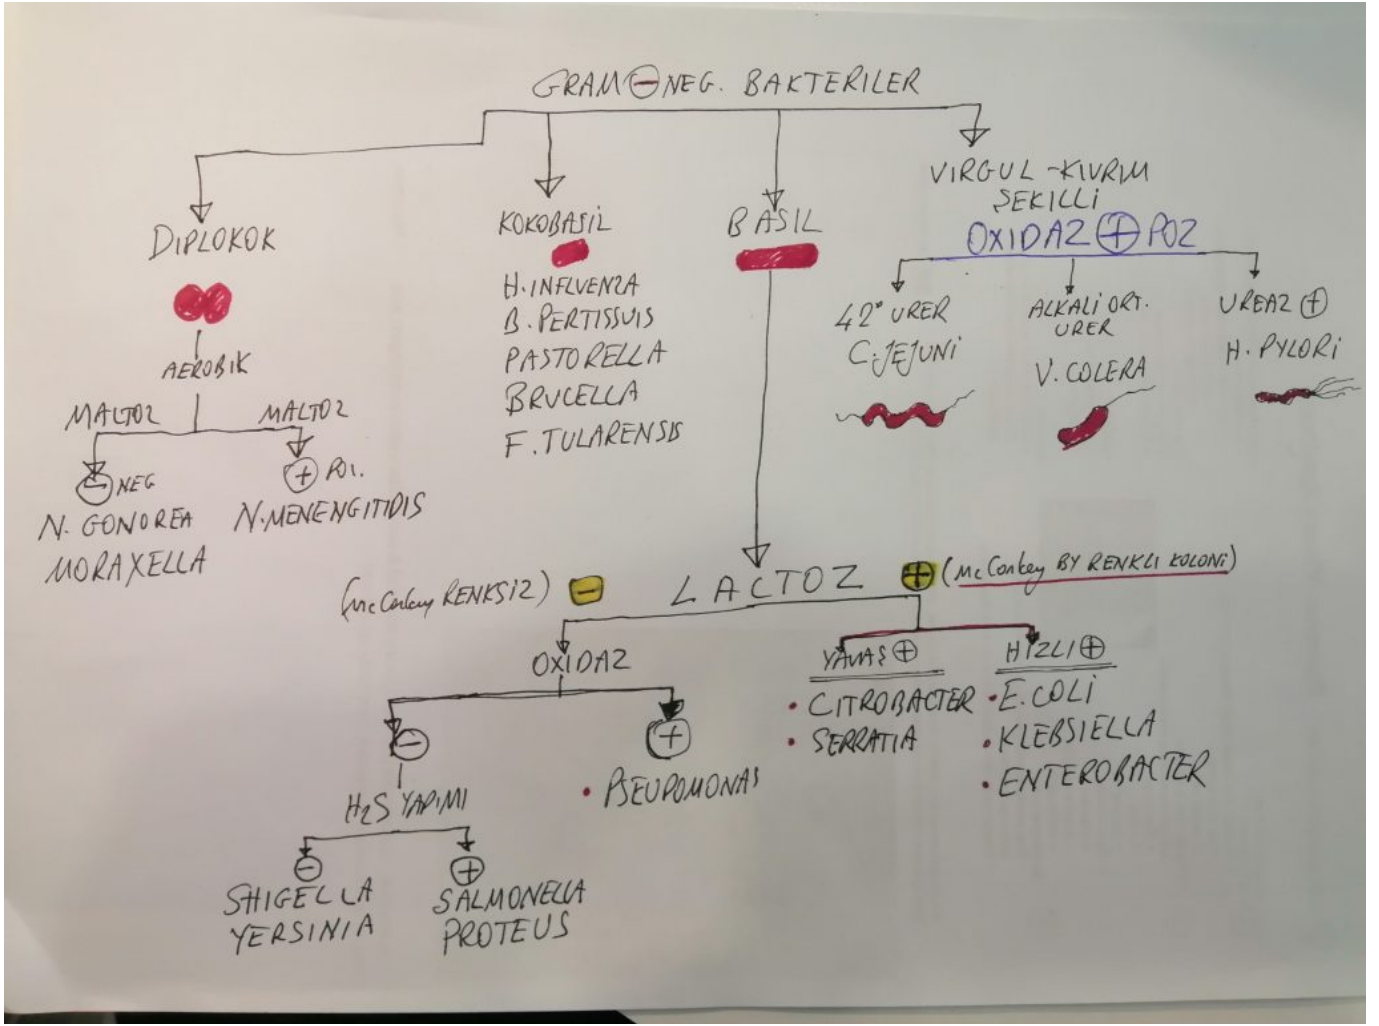 GRAM ⊖ NEG. BAKTERILER
DIPLOKOK
AEROBIK
MALTOZ
MALTOZ
⊖ NEG
N. GONOREA
MORAXELLA
⊕ POZ.
N. MENENGITIDIS
KOKOBASİL
H. INFLUENZA
B. PERTISSUIS
PASTORELLA
BRUCELLA
F. TULARENSIS
BASIL
VIRGUL - KIVRIM
ŞEKILLI
OXIDAZ ⊕ POZ
42° URER
C. JEJUNI
ALKALI ORT.
URER
V. COLERA
UREAZ ⊕
H. PYLORI
(Mc Conkey RENKSIZ) - LACTOZ + (Mc Conkey BY RENKLI KOLONI)
OXIDAZ
⊖
⊕
• PSEUDOMONAS
H₂S YAPIMI
⊖
SHIGELLA
YERSINIA
⊕
SALMONELLA
PROTEUS
YAVAS ⊕
• CITROBACTER
• SERRATIA
HIZLI ⊕
• E. COLİ
• KLEBSIELLA
• ENTEROBACTER